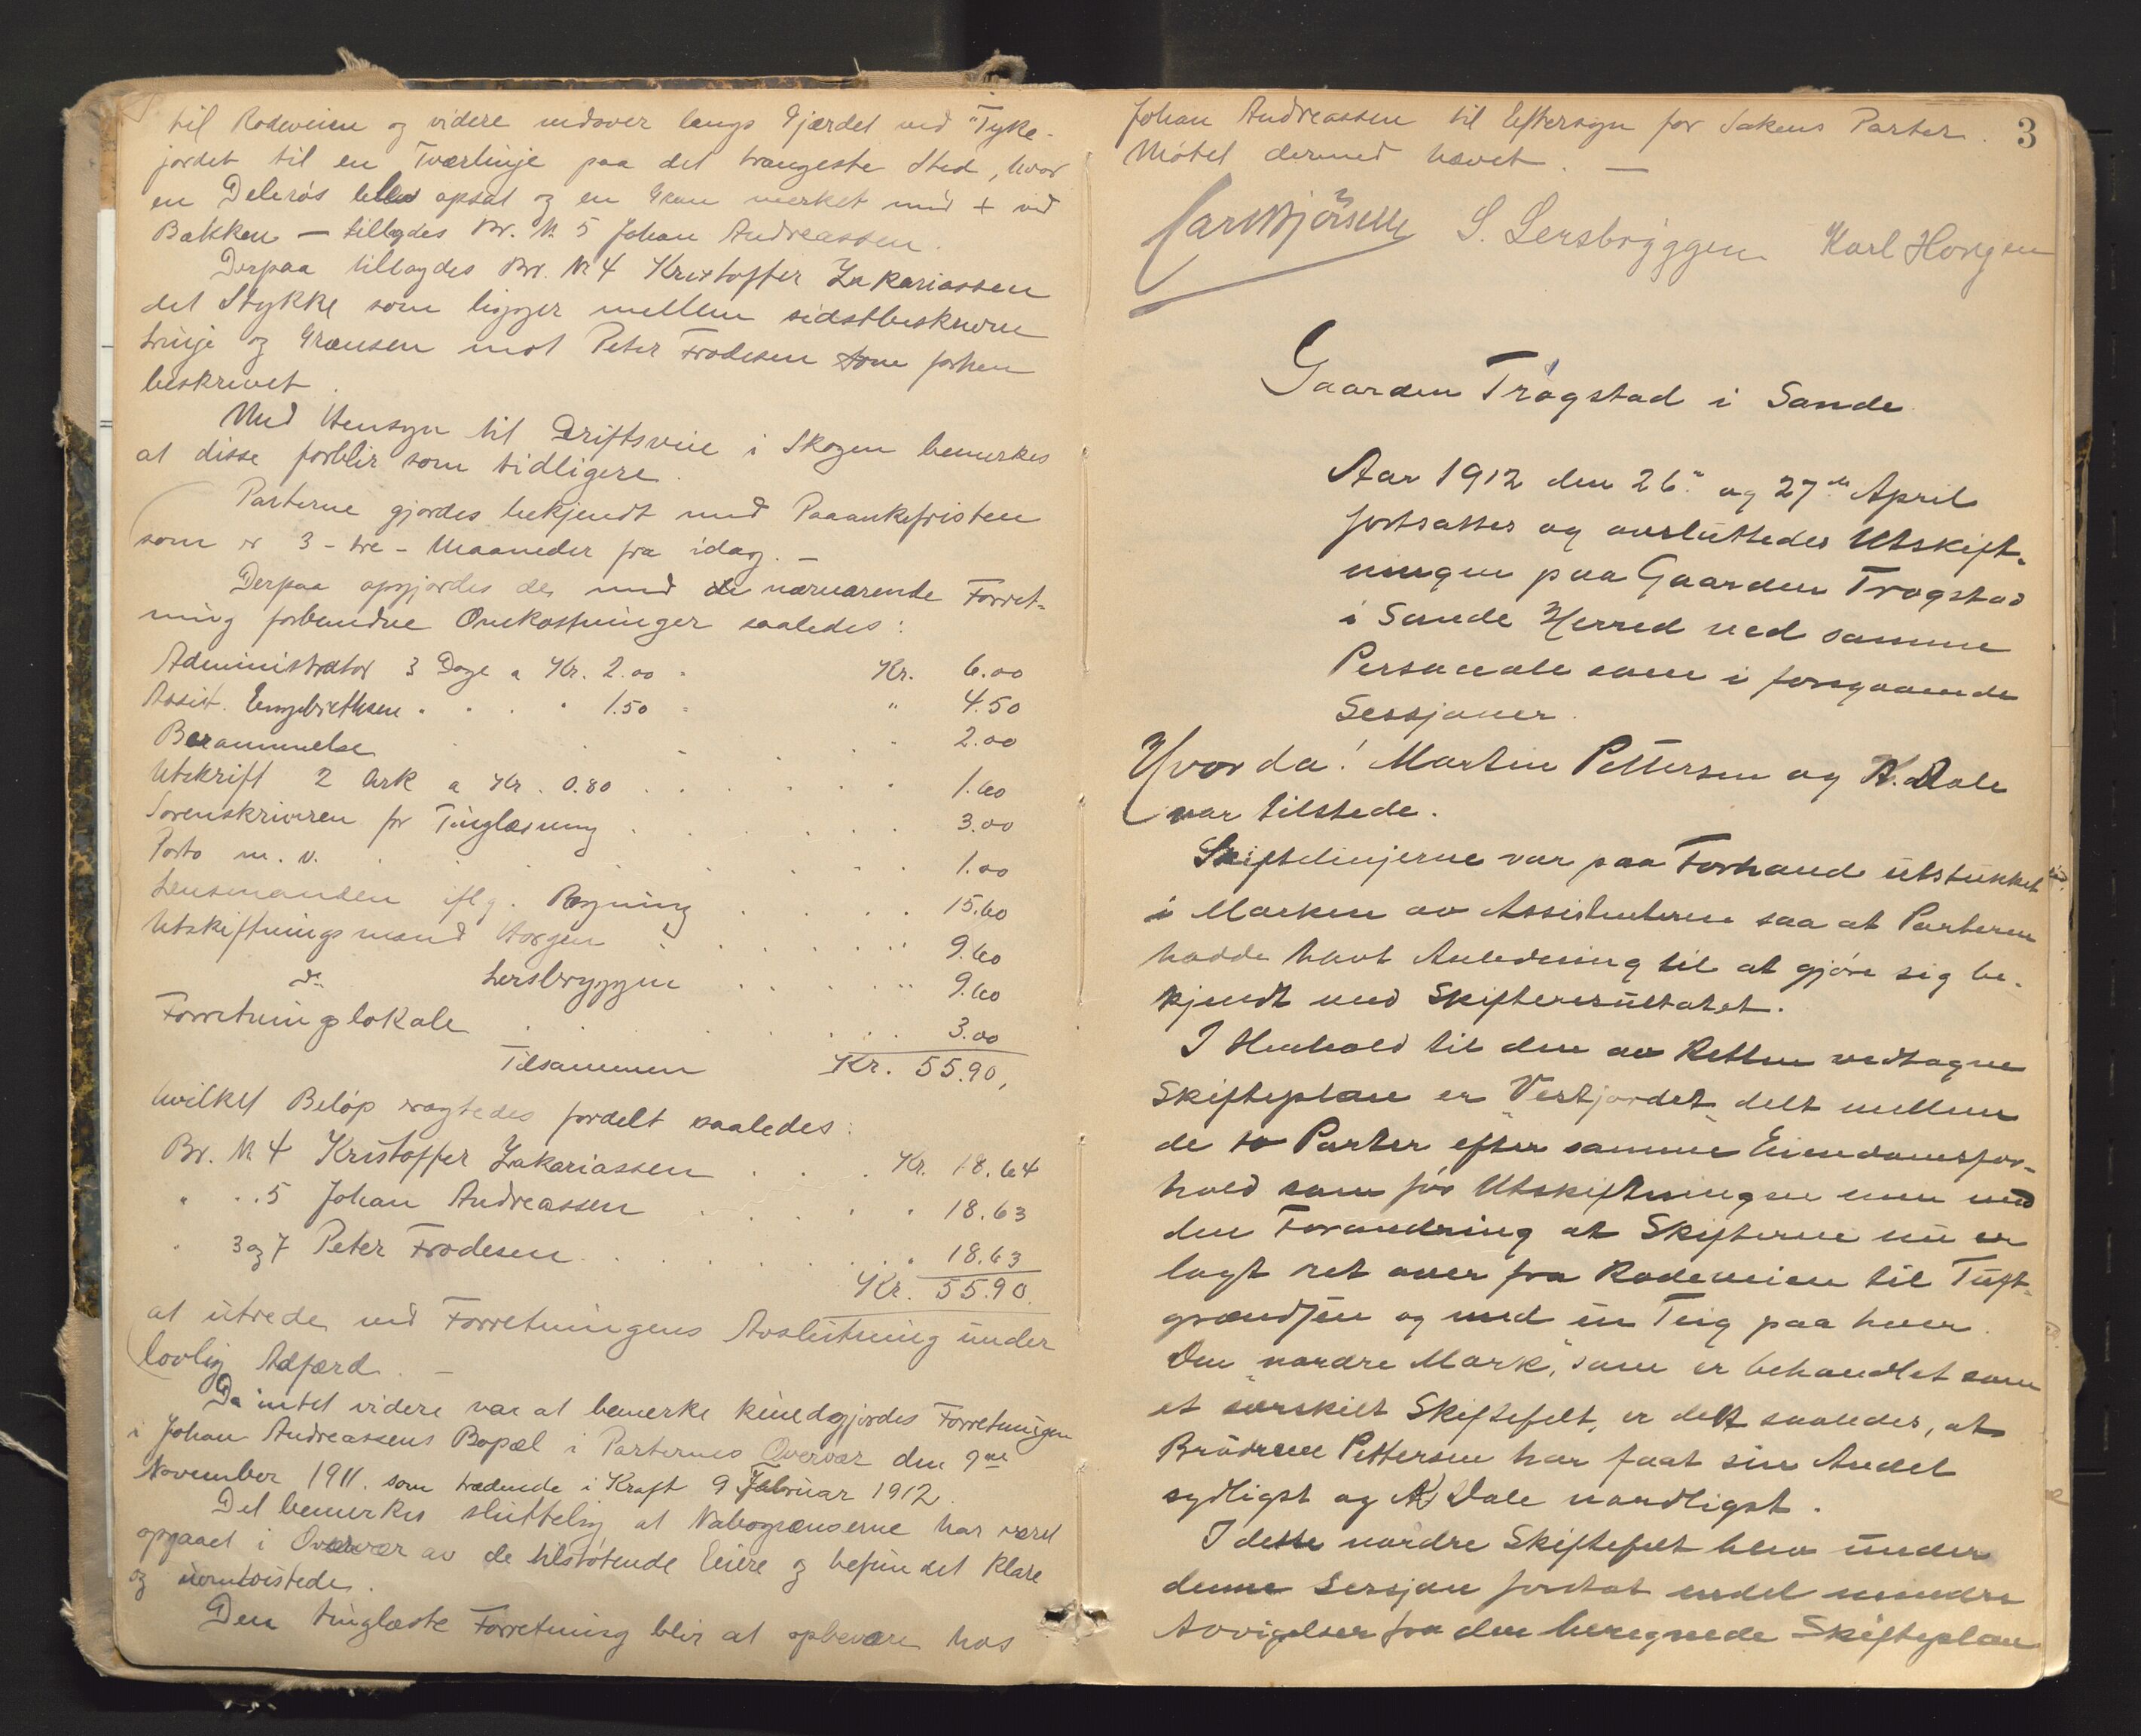 til Rodeveien og videre nedover langs Gjærdet ved "Tyke-
jordet til en Tværlinje paa det trangeste Sted, hvor
en Delerøs blev opsat og en Gran merket med + ved
Bakken — tillagdes Br. Nr 5 Johan Andreassen.
Derpaa tillagdes Br. Nr 4 Kristoffer Zakariassen
det Stykke som ligger mellem sidstbeskrevne
Linje og Grænsen mot Peter Frodesen som forhen
beskrevet.
Med Hensyn til Driftsveie i Skogen bemerkes
at disse forblir som tidligere.
Parterne gjordes bekjendt med Paaankefristen
som er 3 - tre - Maaneder fra idag. —
Derpaa opgjordes de med de nærværende Forret-
ning forbundne Omkostninger saaledes:
Administrator 3 Dage a Kr. 2.00 Kr. 6.00
Assist. Engebrethsen " " " " 1.50 " 4.50
Berammelse 2.00
Utskrift 2 Ark a Kr. 0.80 1.60
Sorenskriveren for Tinglæsning 3.00
Porto m. v. 1.00
Lensmanden iflg. Regning 15.60
Utskiftningsmand Horgen 9.60
do Lersbryggen 9.60
Forretningslokale 3.00
Tilsammen Kr. 55.90,
hvilket Beløp vagtedes fordelt saaledes:
Br. Nr 4 Kristoffer Zakariassen Kr. 18.64
" " 5 Johan Andreassen " 18.63
" 3 og 7 Peter Frodesen " 18.63
Kr. 55.90.
at utrede ved Forretningens Avslutning under
lovlig Adfærd. —
Da intet videre var at bemerke kundgjordes Forretningen
i Johan Andreassens Bopæl i Parternes Overvær den 9de
November 1911. som trædende i Kraft 9 Februar 1912.
Det bemerkes sluttelig at Nabogrænserne har været
opgaaet i Overvær av de tilstøtende Eiere og befundet klare
og uomtvistede.
Den tinglæste Forretning blir at opbevare hos
3
Johan Andreassen til Eftersyn for Sakens Parter.
Møtet dermed hævet. —
S. Lersbryggen Karl Horgen
Gaarden Trøgstad i Sande.
Aar 1912 den 26de og 27de April
fortsattes og avsluttedes Utskift-
ningen paa Gaarden Trogstad
i Sande Herred ved samme
Personale som i foregaaende
Sessjoner.
Hvorda! Martin Pettersen og K. Dale
var tilstede.
Skiftelinjerne var paa Forhaand utstukket
i Marken av Assistenterne saa at Parterne
hadde havt Anledning til at gjøre sig be-
kjendt med Skifteresultatet.
I Henhold til den av Retten vedtagne
Skifteplan er "Vestjordet" delt mellem
de to Parter efter samme Eiendomsfor-
hold som før Utskiftningen men med
den Forandring at Skifterne nu er
lagt ret over fra Rodeveien til Tuft-
grændsen og med en Teig paa hver.
Den "nordre Mark", som er behandlet som
et særskilt Skiftefelt, er delt saaledes, at
Brødrene Pettersen har faat sin Andel
sydligst og K. Dale nordligst.
I dette nordre Skiftefelt blev under
denne Sessjon foretat endel mindre
Avvigelser fra den beregnede Skifteplan